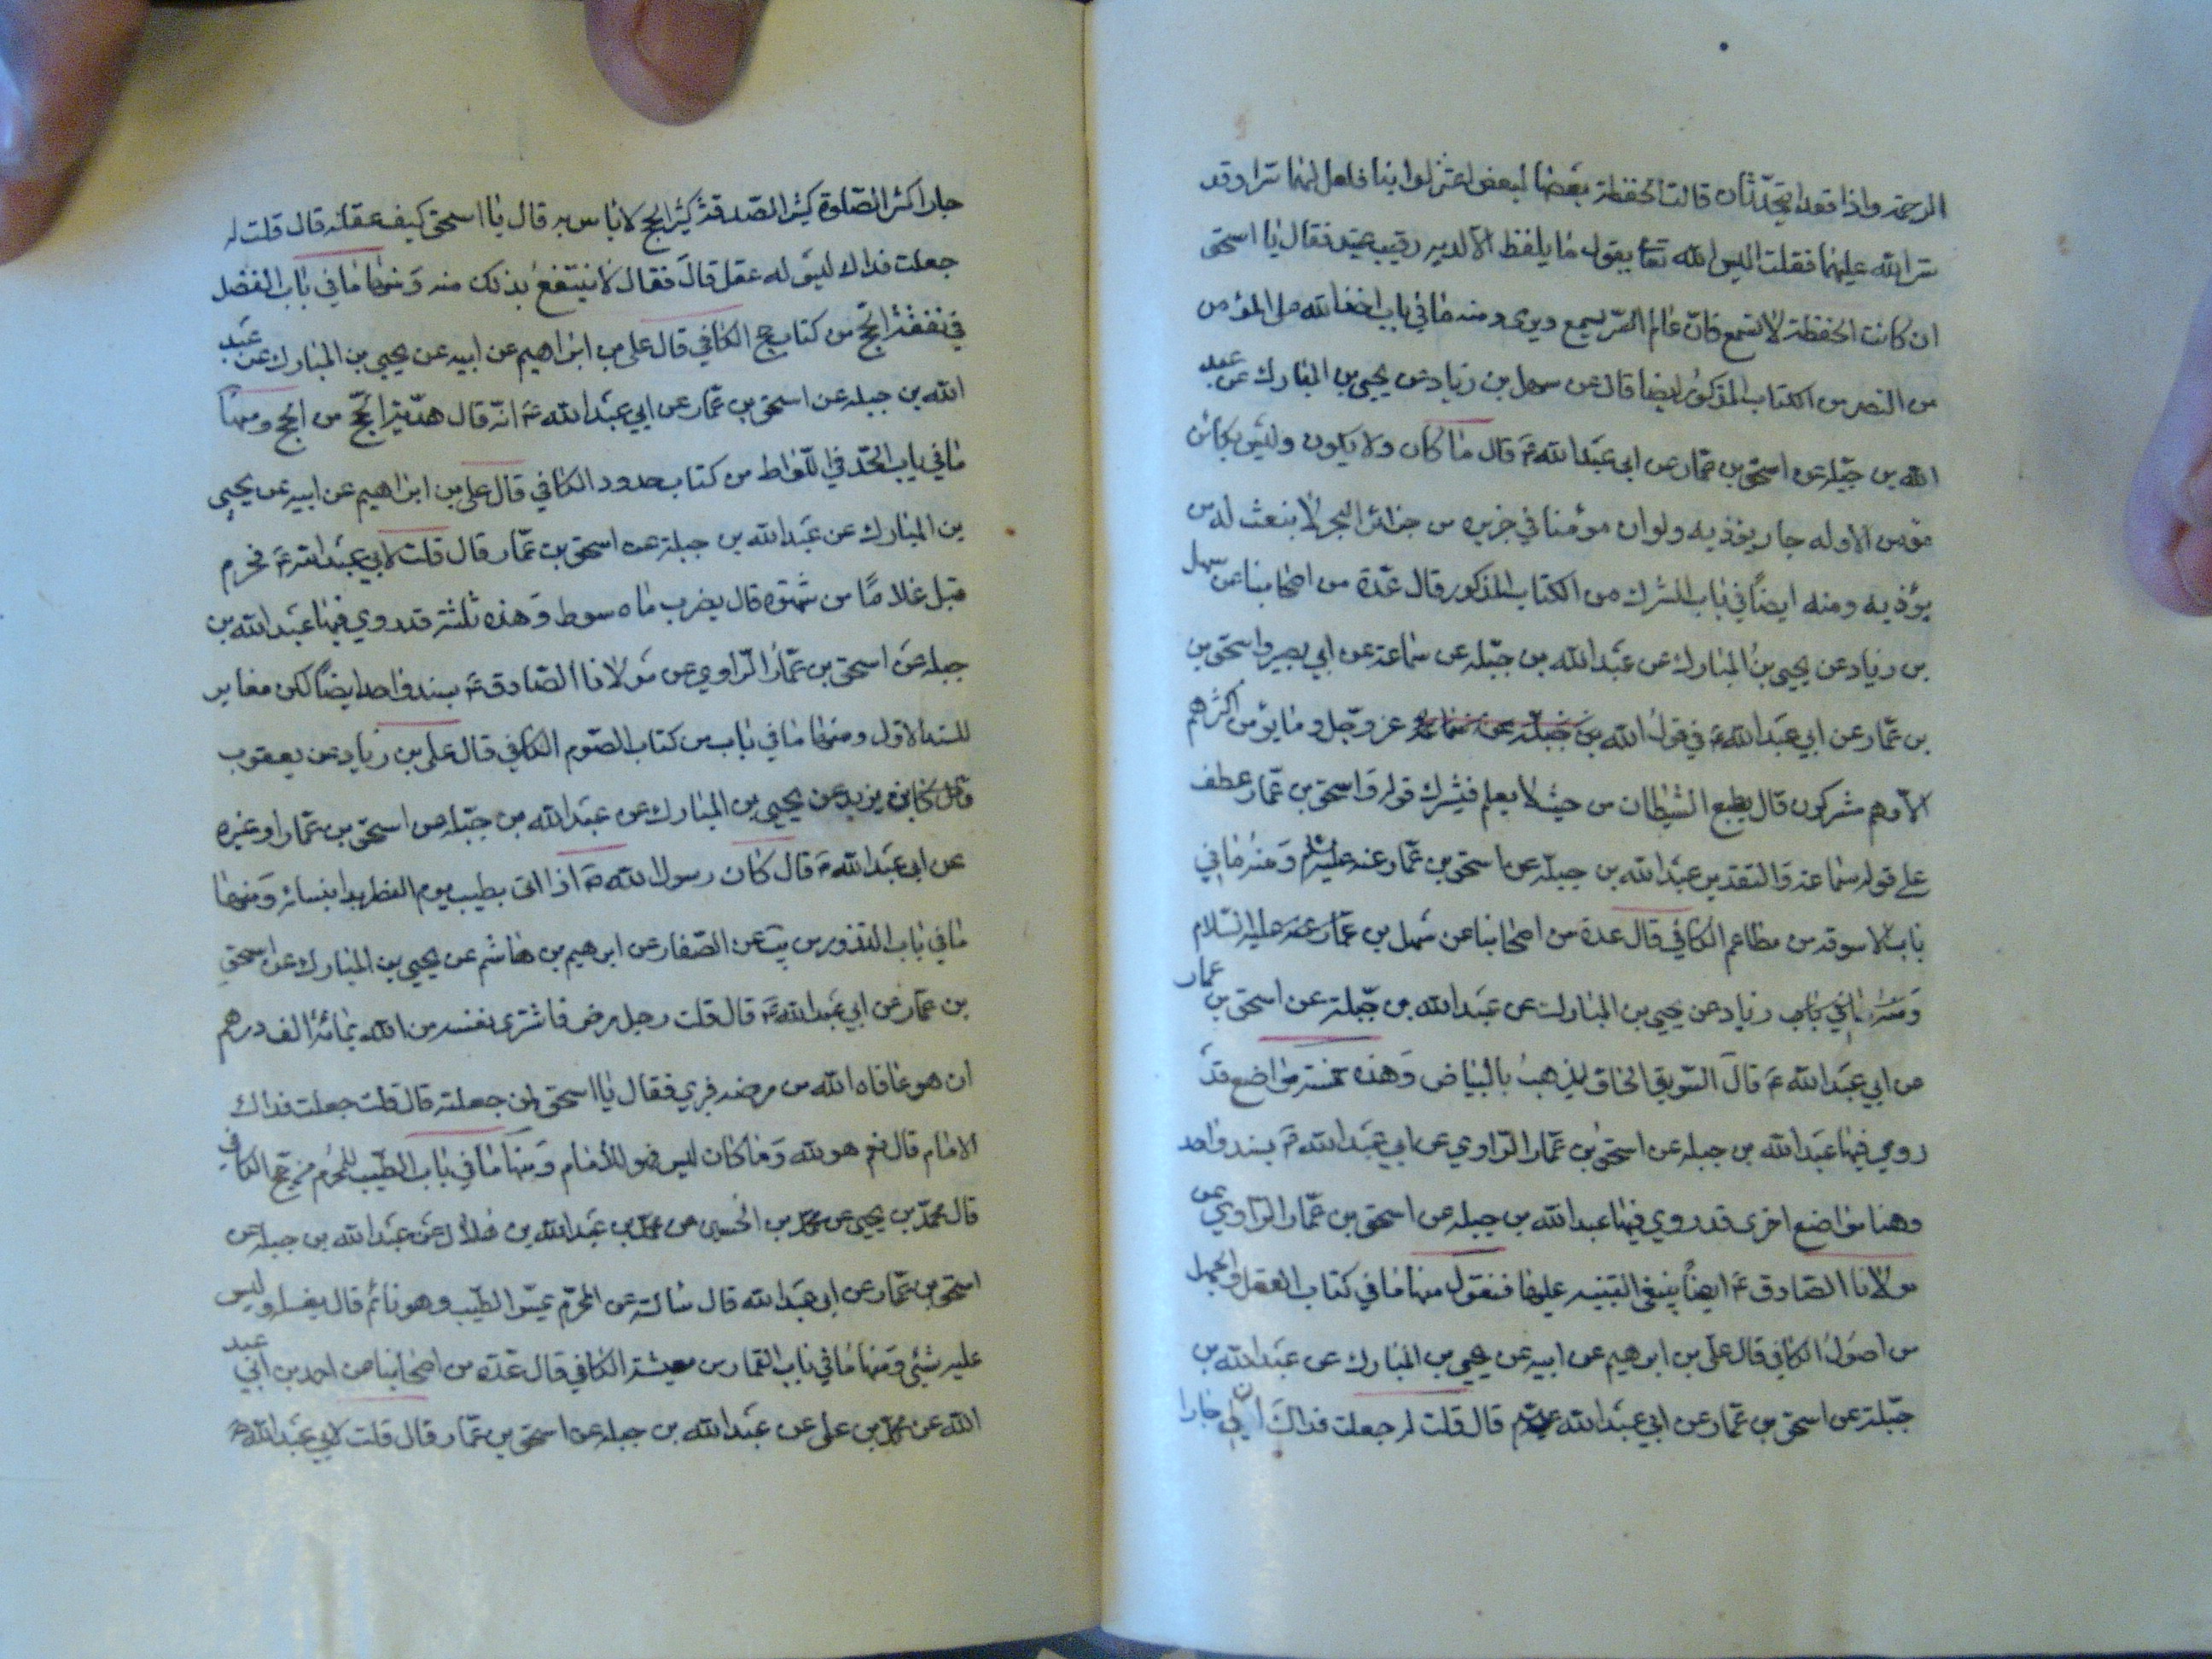 الرحمة واذا قعدا يتحدّثان قالت الحفظة بعضها لبعض اعتزلوا بنا فلعل لهما سرا وقد
ستر الله عليهما فقلت اليس الله تعا يقول ما يلفظ الا لديه رقيب عتيد فقال يا اسحق
ان كانت الحفظة لا تسمع فانّ عالم السّر يسمع ويرى ومنه ما في باب اخذ الله على المؤمن
من الكتاب المذكور ايضا قال عن سهل بن زياد عن يحيى بن المبارك عن عبد
الله بن جبلة عن اسحق بن عمّار عن ابي عبد الله ع قال ما كان ولا يكون وليس بكائن
مؤمن الا وله جار يؤذيه ولو ان مؤمنا في جزيرة من جزائر البحر لانبعث له من
يؤذيه ومنه ايضاً في باب الشرك من الكتاب المذكور قال عدّة من اصحابنا عن سهل
بن زياد عن يحيى بن المبارك عن عبد الله بن جبلة عن سماعة عن ابي بصير واسحق بن
بن عمّار عن ابي عبد الله ع في قول الله بن جبلة عن سماعة عز وجل وما يؤمن اكثرهم
الا وهم مشركون قال يطيع الشيطان من حيث لا يعلم فيشرك قوله واسحق بن عمّار عطف
على قوله سماعة والتقدير عبد الله بن جبلة عن اسحق بن عمّار عنه عليه السلام ومنه ما في
باب الاسوقة من مطاعم الكافي قال عدة من اصحابنا عن سهل بن عمّار عنه عليه السّلام
ومنه ما في باب زياد عن يحيى بن المبارك عن عبد الله بن جبلة عن اسحق بن عمار
عن ابي عبد الله ع قال السّويق الجاف يذهب بالبياض وهذه خمسة مواضع قد
روي فيها عبد الله بن جبلة عن اسحق بن عمّار الرّاوي عن ابي عبد الله ع بسند واحد
وهنا مواضع اخرى قد روي فيها عبد الله بن جبلة عن اسحق بن عمّار الراوي عن
مولانا الصّادق ع ايضاً ينبغي التنبيه عليها فنقول منها ما في كتاب العقل والجهل
من اصول الكافي قال علي بن ابرهيم عن ابيه عن يحيى بن المبارك عن عبد الله بن
جبلة عن اسحق بن عمّار عن ابي عبد الله ع قال قلت له جعلت فداك ان لي جارا
جارا كثير الصّلوة كثير الصّدقة كثير الحج لا باس به قال يا اسحق كيف عقله قال قلت له
جعلت فداك ليس له عقل قال فقال لا ينتفع بذلك منه ومنها ما في باب الفضل
في نفقة الحج من كتاب حج الكافي قال علي بن ابراهيم عن ابيه عن يحيى بن المبارك عن عبد
الله بن جبلة عن اسحق بن عمّار عن ابي عبد الله ع انّه قال هديّة الحجّ من الحج ومنها
ما في باب الحدّ في اللّواط من كتاب حدود الكافي قال علي بن ابراهيم عن ابيه عن يحيى
بن المبارك عن عبد الله بن جبلة عن اسحق بن عمّار قال قلت لابي عبد الله ع محرم
قبل غلامًا من شهوة قال يضرب ماه سوط وهذه ثلثة قد روي فيها عبد الله بن
جبلة عن اسحق بن عمّار الرّاوي عن مولانا الصّادق ع بسند واحد ايضاً لكن مغاير
للسند الاول ومنها ما في باب من كتاب الصّوم الكافي قال علي بن زياد عن يعقوب
بن يزيد عن يحيى بن المبارك عن عبد الله بن جبلة عن اسحق بن عمّار او غيره
عن ابي عبد الله ع قال كان رسول الله ص اذا اتى بطيب يوم الفطر بدا بنسائه ومنها
ما في باب النذور من يب عن الصّفار عن ابرهيم بن هاشم عن يحيى بن المبارك عن اسحق
بن عمّار عن ابي عبد الله ع قال قلت رجل مرض فاشترى نفسه من الله بمائة الف درهم
ان هو عافاه الله من مرضه فبرئ فقال يا اسحق لمن جعلته قال قلت جعلت فداك
الامام قال نعم هو لله وما كان لله فهو للامام ومنها ما في باب الطّيب للمحرم من حج الكافي
قال محمّد بن يحيى عن محمّد بن الحسين عن محمّد بن عبد الله بن هلال عن عبد الله بن جبلة عن
اسحق بن عمّار عن ابي عبد الله قال سالته عن المحرّم يمسّ الطّيب وهو نائم قال يغسله وليس
عليه شئي ومنها ما في باب القمار من معيشة الكافي قال عدّة من اصحابنا عن احمد بن ابي عبد
الله عن محمّد بن علي عن عبد الله بن جبلة عن اسحق بن عمّار قال قلت لابي عبد الله ع